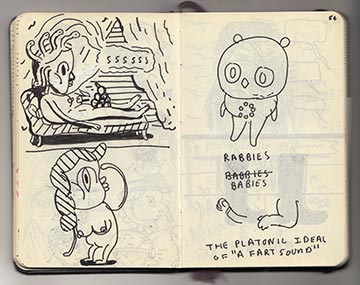 SSSSSS
56
RABBIES
BABBIES
BABIES
THE PLATONIC IDEAL
OF "A FART SOUND"